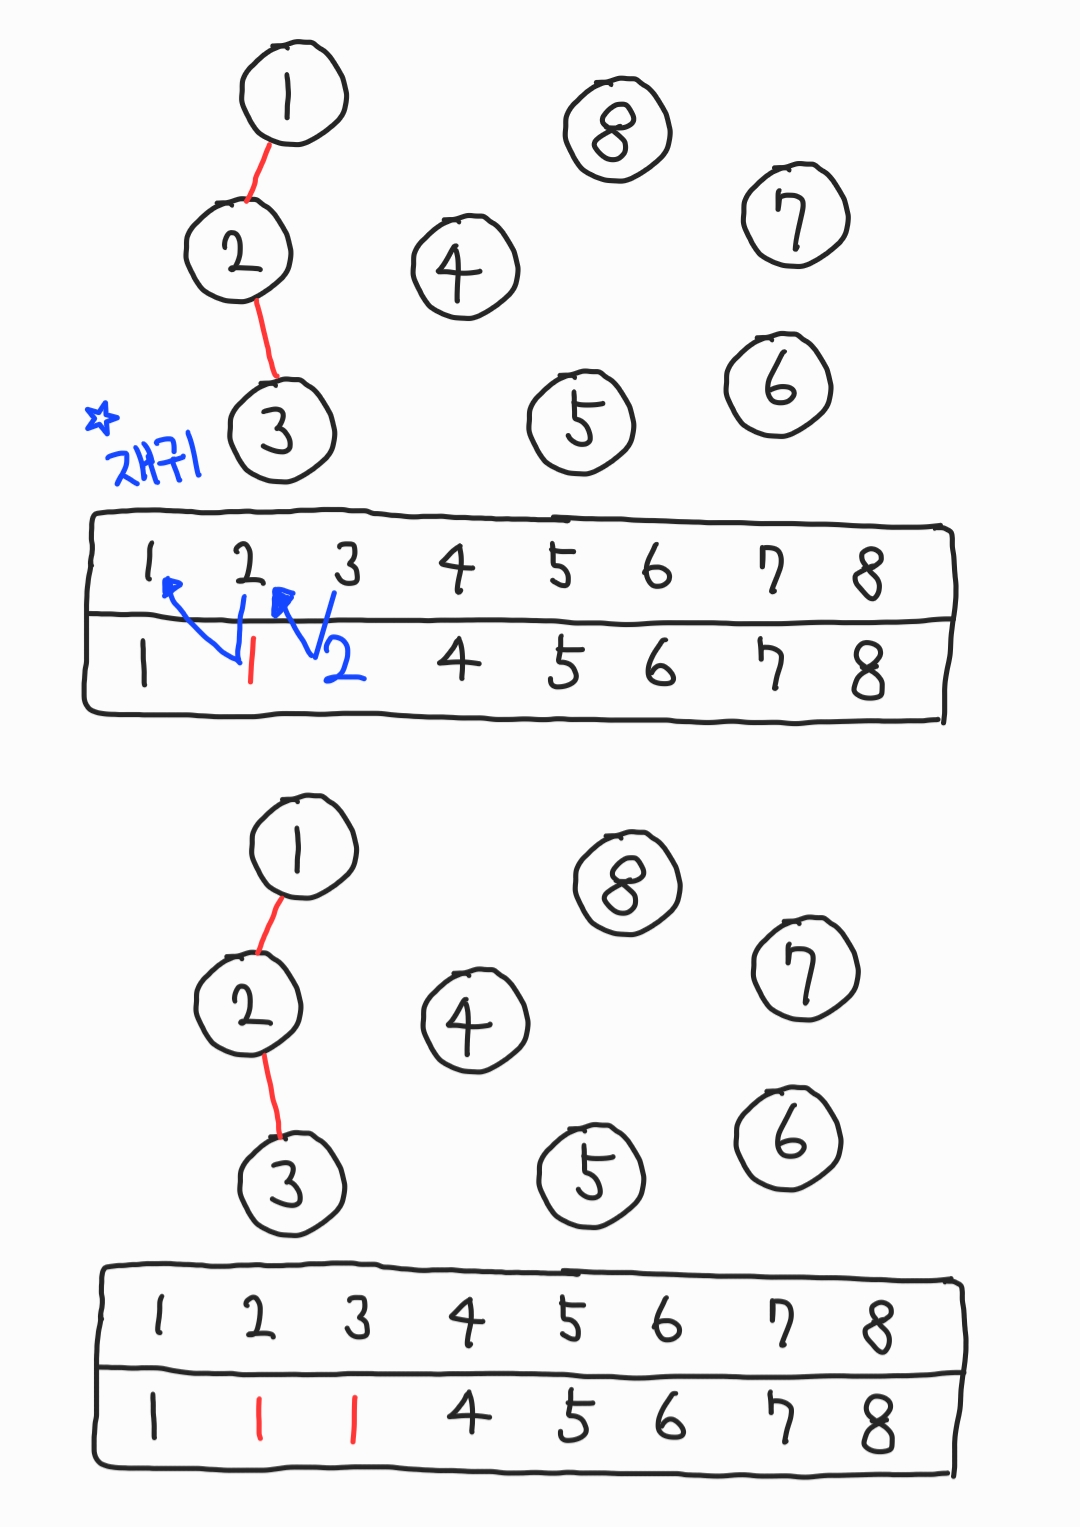 1
8
7
2
4
6
3
5
☆
재귀
1 2 3 4 5 6 7 8
1 1 2 4 5 6 7 8
1
8
7
2
4
6
3
5
1 2 3 4 5 6 7 8
1 1 1 4 5 6 7 8